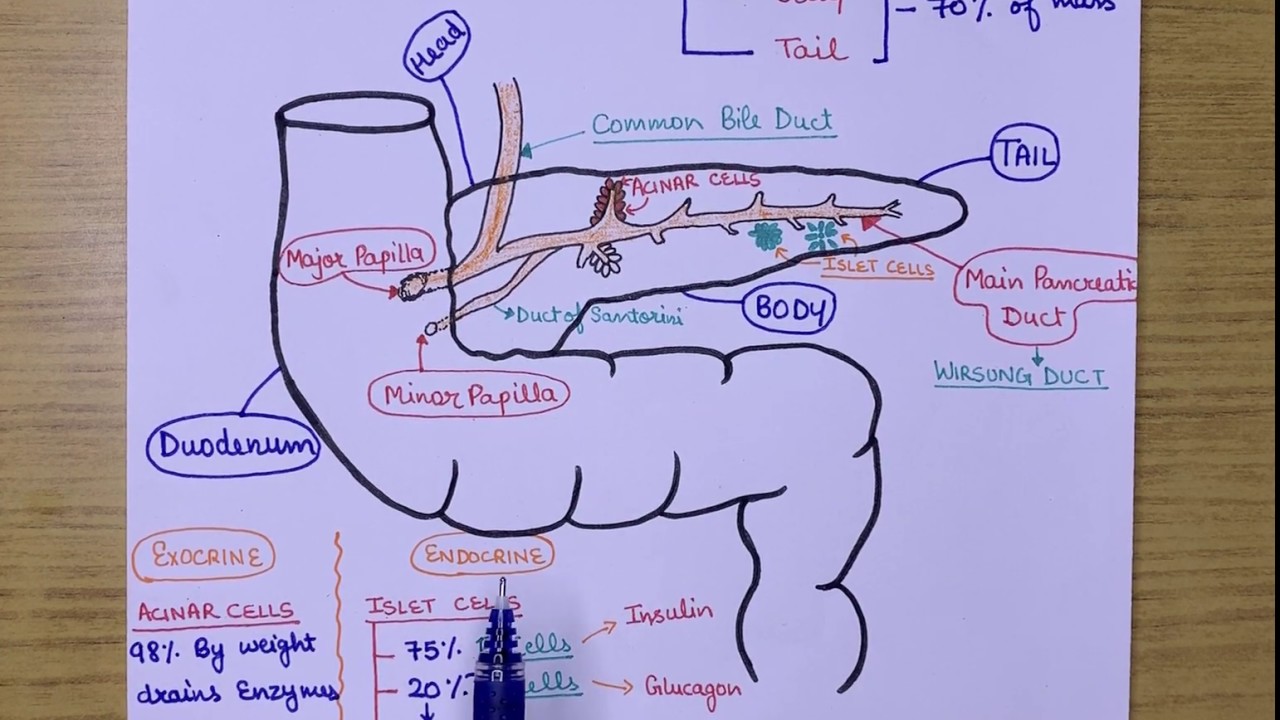 - 70% of mass
Tail
Head
Common Bile Duct
TAIL
ACINAR CELLS
Major Papilla
ISLET CELLS
Main Pancreatic
Duct
BODY
Duct of Santorini
WIRSUNG DUCT
Minor Papilla
Duodenum
EXOCRINE
ENDOCRINE
ACINAR CELLS
ISLET CELLS
98% By weight
drains Enzymes
75%
Insulin
20%
Glucagon